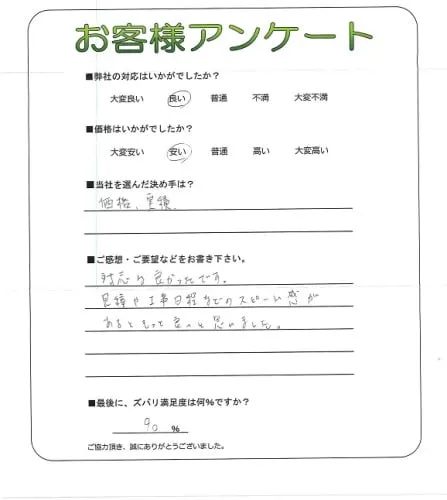 お客様アンケート
■弊社の対応はいかがでしたか？
大変良い 良い 普通 不満 大変不満
■価格はいかがでしたか？
大変安い 安い 普通 高い 大変高い
■当社を選んだ決め手は？
価格、実績
■ご感想・ご要望などをお書き下さい。
対応は良かったです。
見積や工事日程などのスピード感が
あるともっと良いと思いました。
■最後に、ズバリ満足度は何%ですか？
90 %
ご協力頂き、誠にありがとうございました。